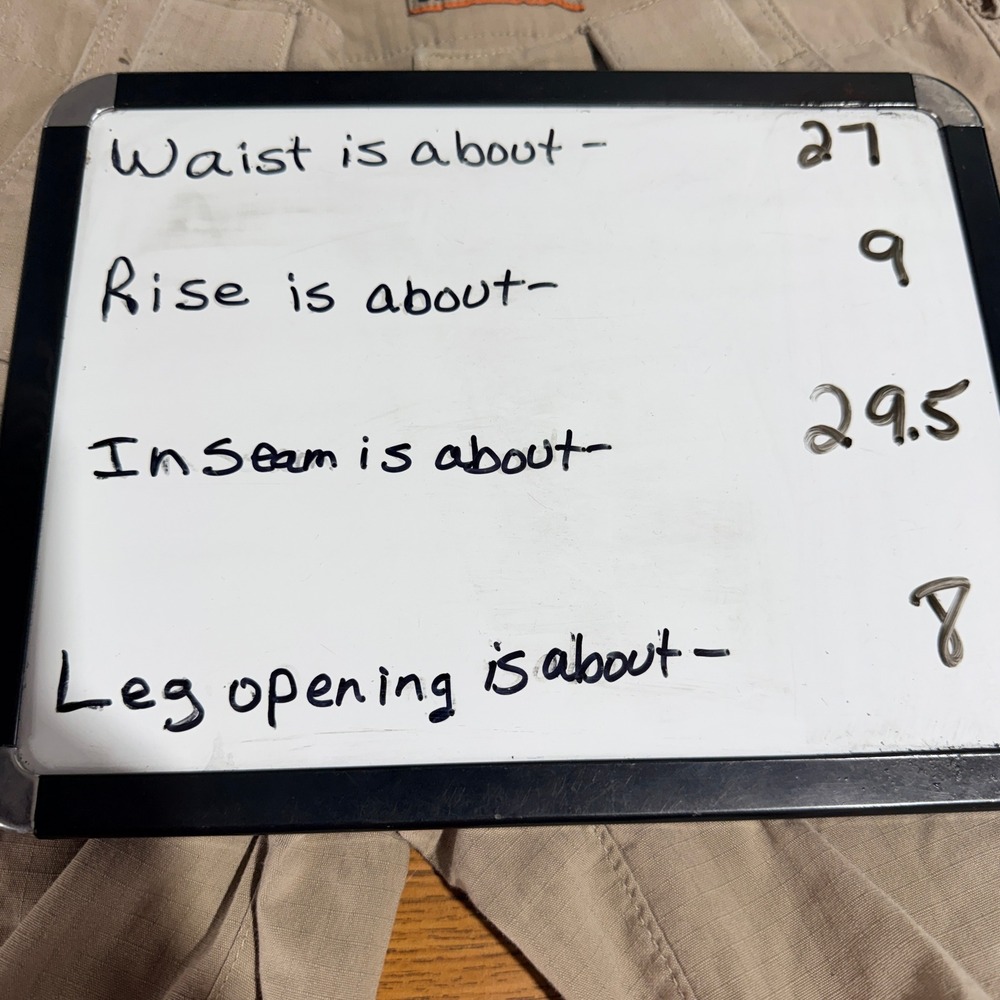 Waist is about - 27
Rise is about- 9
Inseam is about- 29.5
Leg opening is about- 8